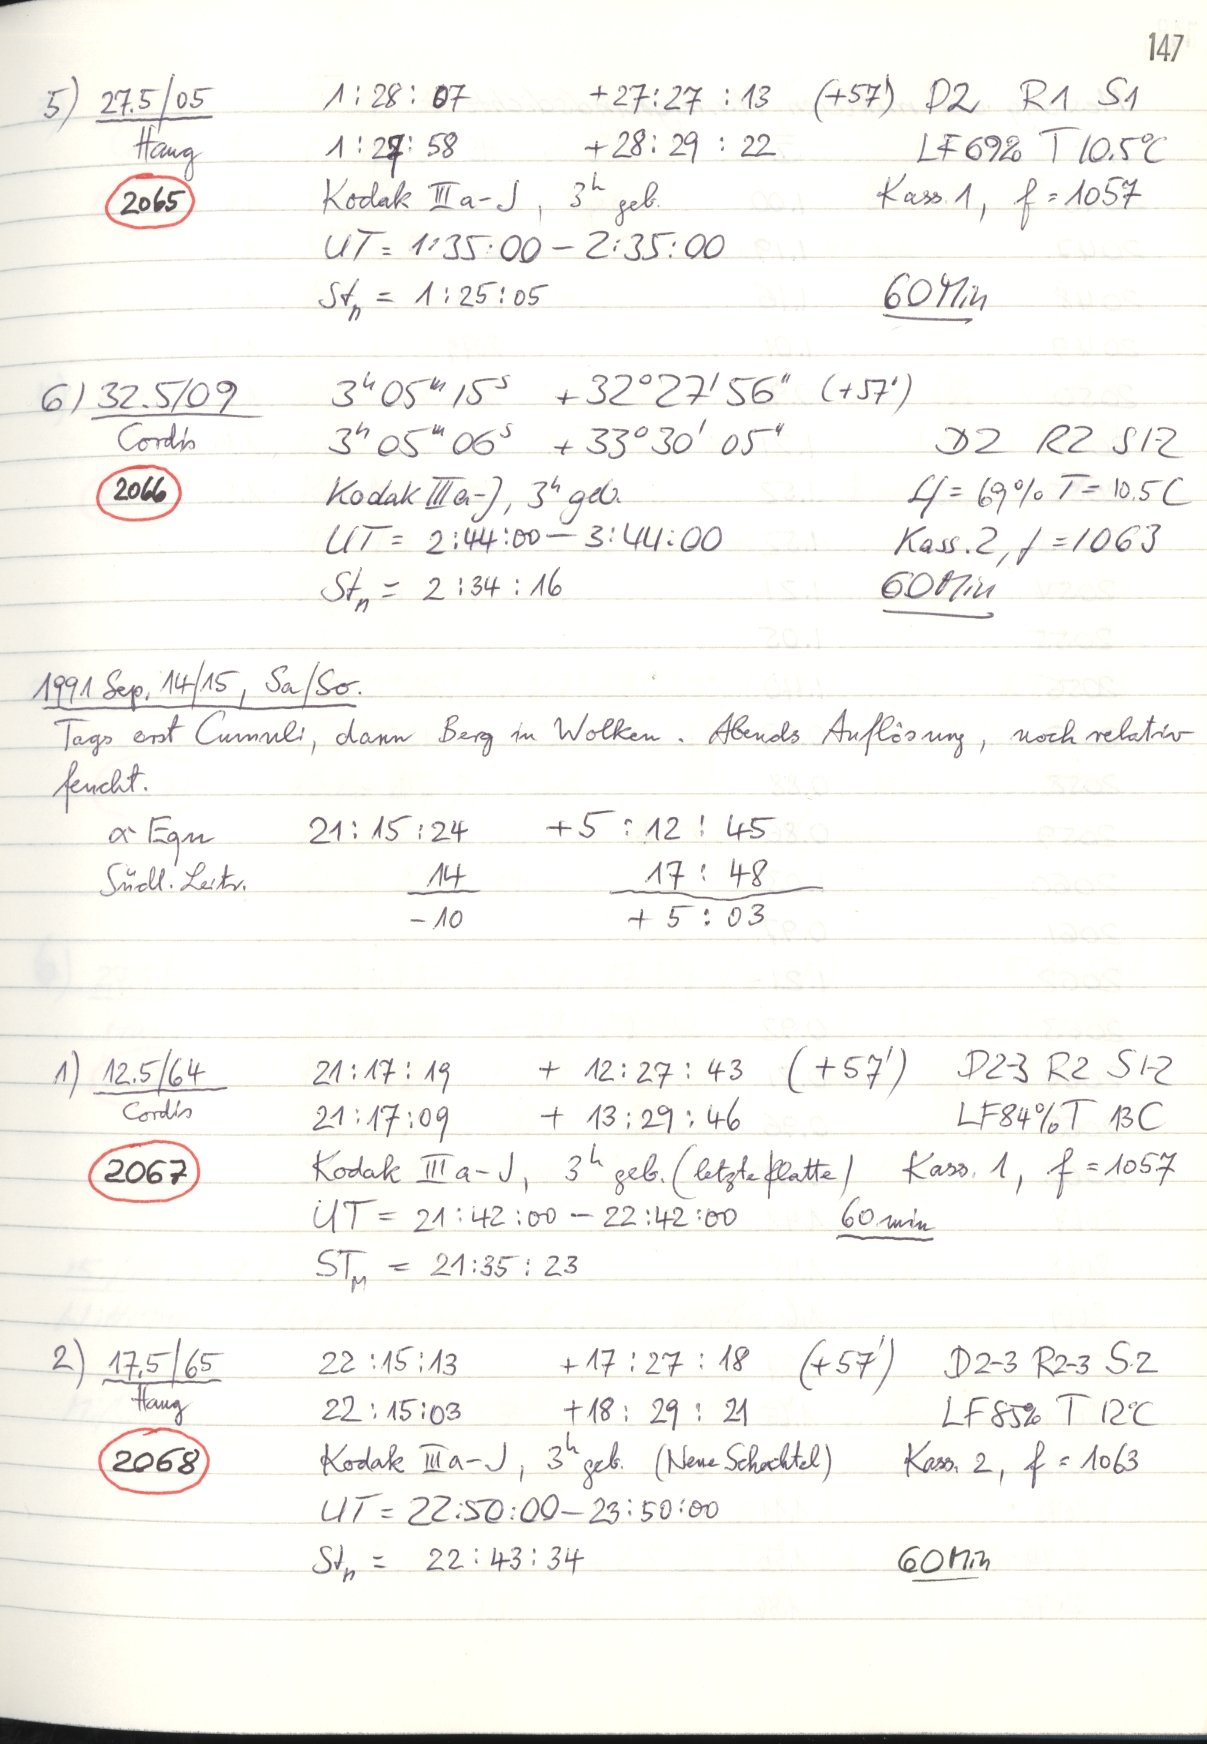 147
5) 27.5/05 1:28:07 +27:27:13 (+57') D2 R1 S1
Haug 1:27:58 +28:29:22 LF69% T 10.5°C
2065 Kodak IIIa-J, 3h geb. Kass. 1, f = 1057
UT = 1:35:00 – 2:35:00
Stn = 1:25:05 60 Min
6) 32.5/09 3h 05m 15s +32° 27' 56" (+57')
Cordis 3h 05m 06s +33° 30' 05" D2 R2 S1-2
2066 Kodak IIIa-J, 3h geb. Lf = 69% T = 10.5 C
UT = 2:44:00 – 3:44:00 Kass. 2, f = 1063
Stn = 2:34:16 60 Min
1991 Sep. 14/15, Sa/So.
Tags erst Cumuli, dann Berg in Wolken. Abends Auflösung, noch relativ
feucht.
α Equ 21:15:24 +5:12:45
Südl. Leitr. 14 17:48
-10 +5:03
1) 12.5/64 21:17:19 +12:27:43 (+57') D2-3 R2 S1-2
Cordis 21:17:09 +13:29:46 LF84% T 13C
2067 Kodak IIIa-J, 3h geb. (letzte Platte) Kass. 1, f = 1057
UT = 21:42:00 – 22:42:00 60 min
STM = 21:35:23
2) 17.5/65 22:15:13 +17:27:18 (+57') D2-3 R2-3 S.2
Haug 22:15:03 +18:29:21 LF85% T 12°C
2068 Kodak IIIa-J, 3h geb. (Neue Schachtel) Kass. 2, f = 1063
UT = 22:50:00 – 23:50:00
Stn = 22:43:34 60 Min